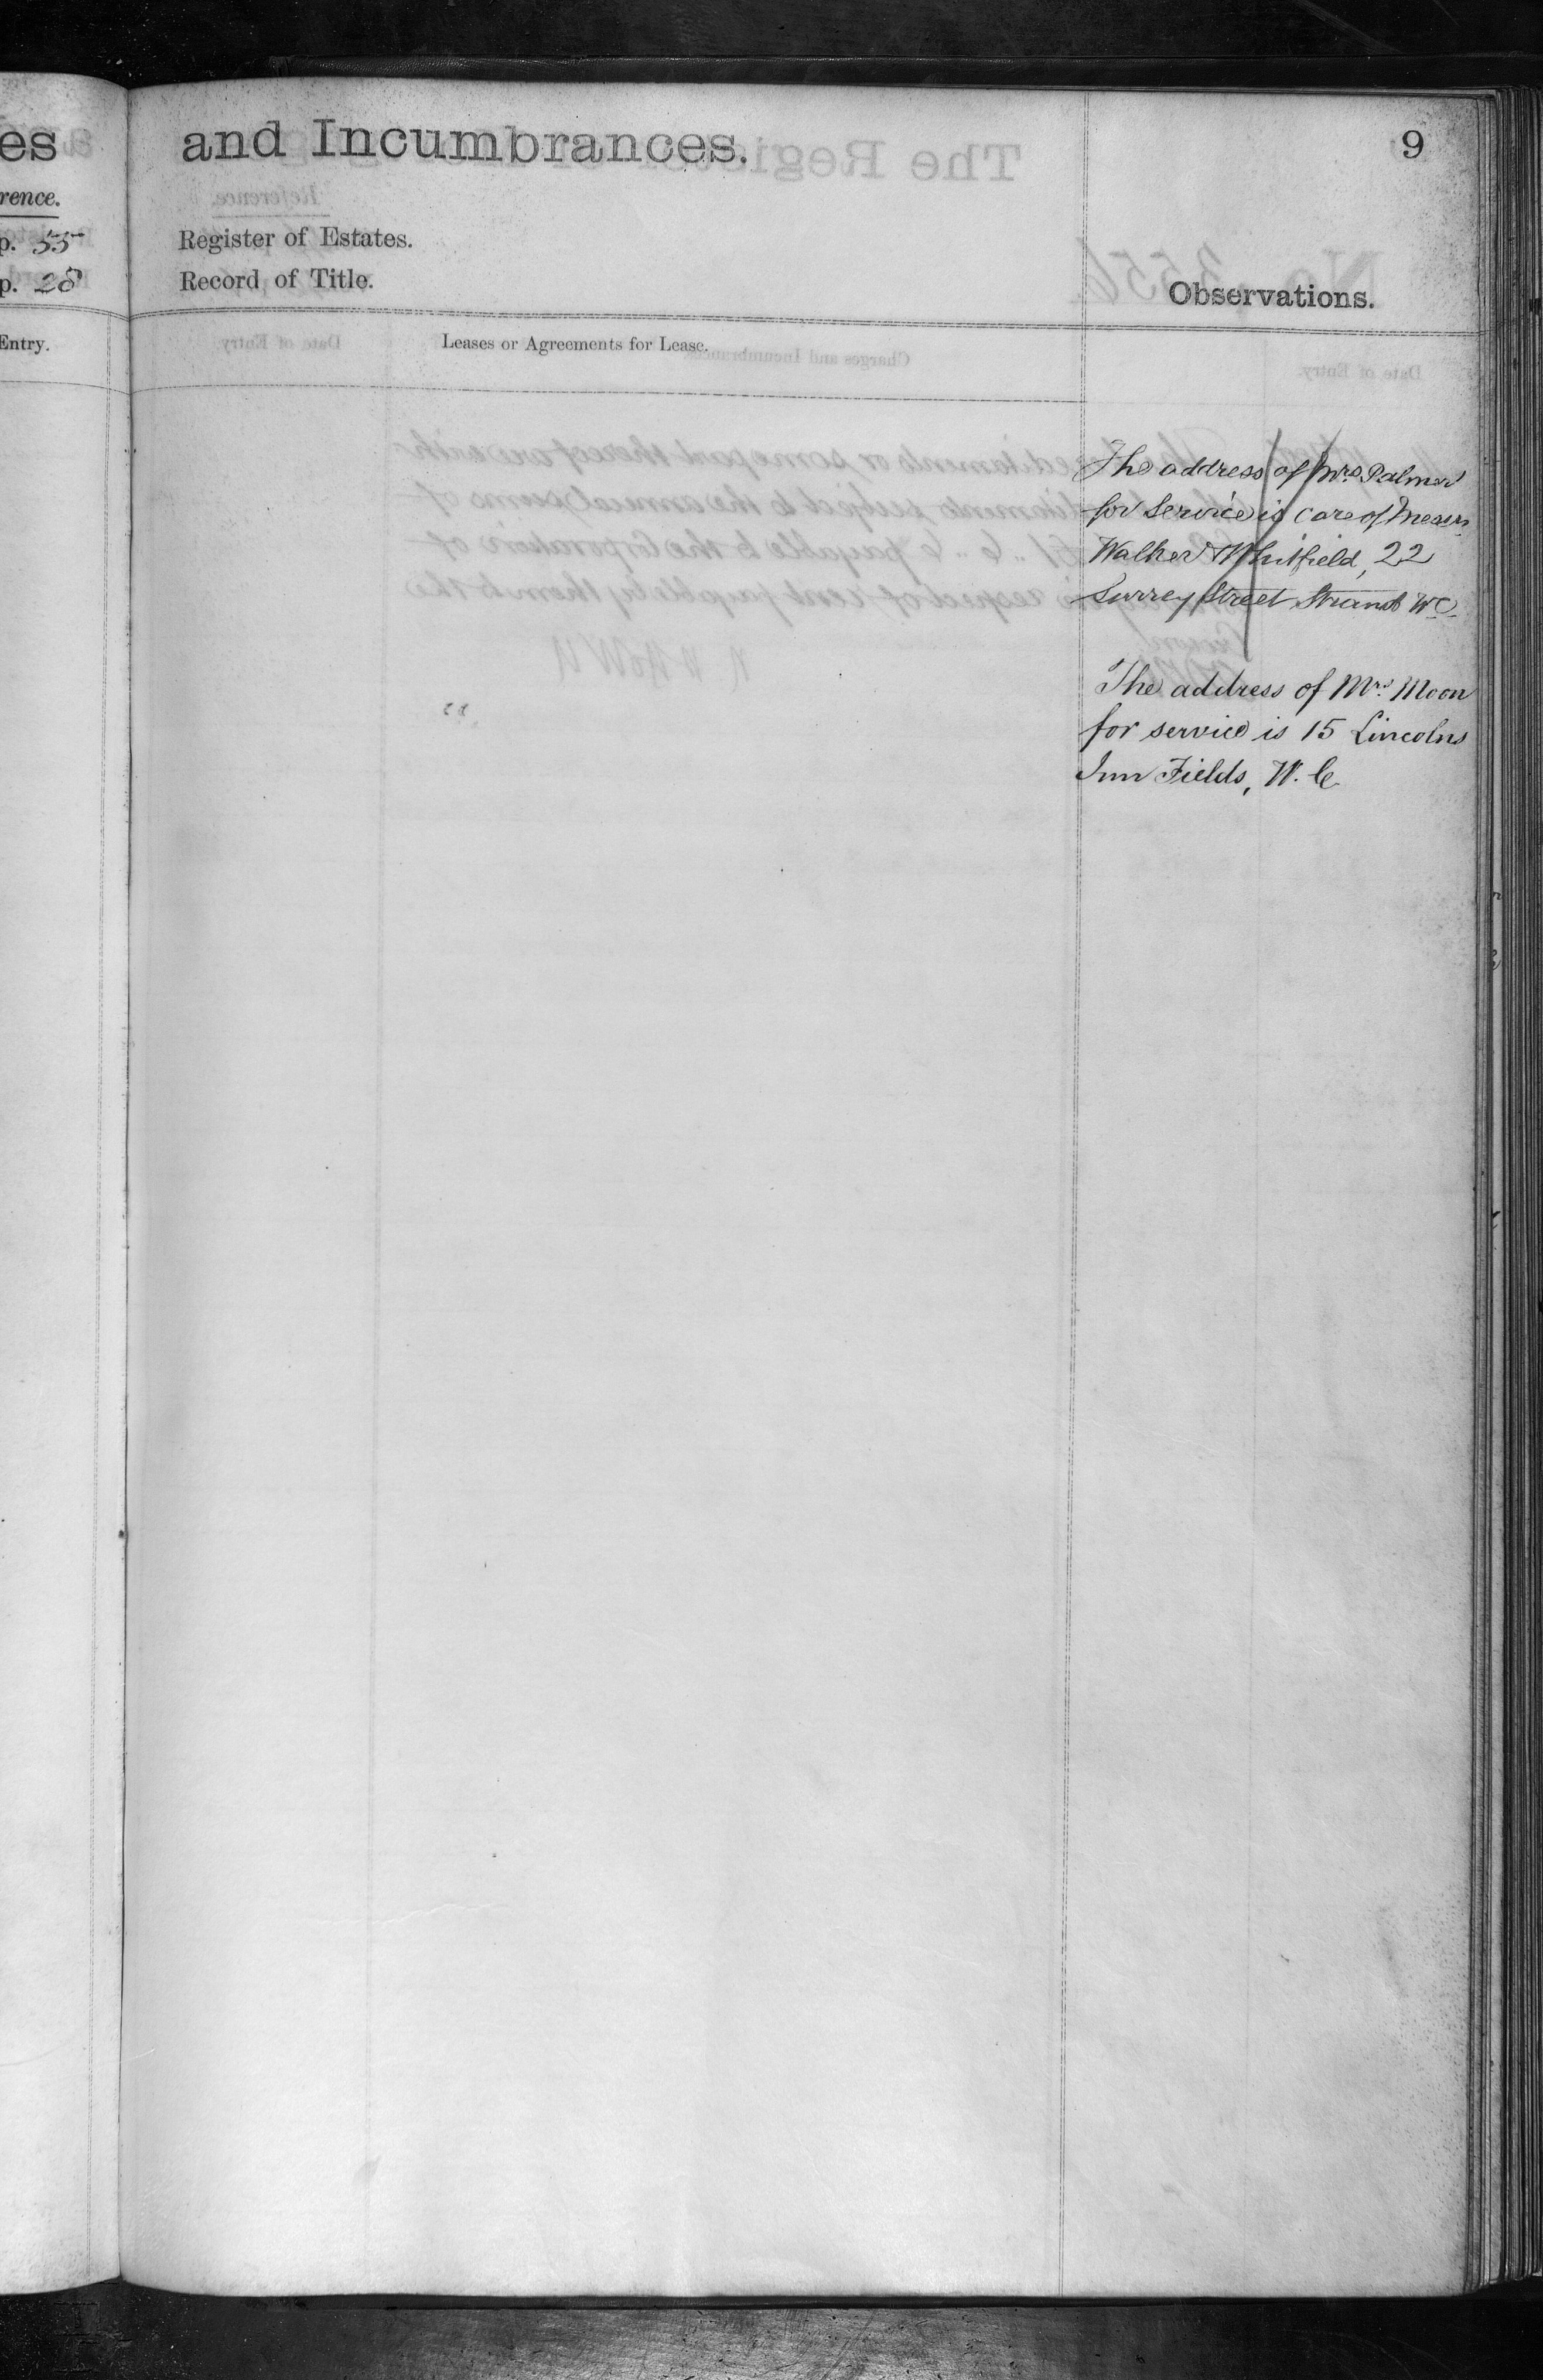 es
rence.
p. 55
p. 28
Entry.
and Incumbrances.
9
Register of Estates.
Record of Title.
Observations.
Leases or Agreements for Lease.
The address of Mrs. Palmer
for Service is care of Messrs
Walker & Whitfield, 22
Surrey Street Strand WC.
The address of Mrs. Moon
for service is 15 Lincolns
Inn Fields, W.C.